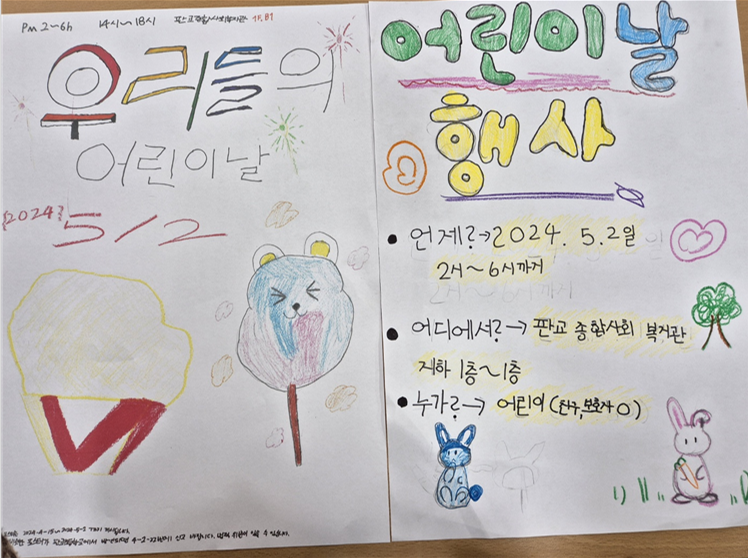 Pm 2~6h 14시~18시 판교종합사회복지관 1F, B1
우리들의
어린이날
{2024}
5/2
어린이날
행사
언제?→2024. 5. 2일
2시~6시까지
어디에서?→ 판교 종합사회 복지관
지하 1층~1층
누가?→ 어린이 (친구, 보호자 O)